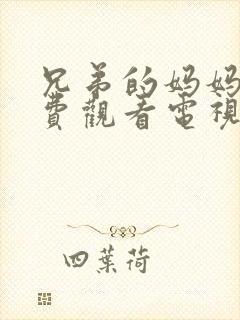 兄弟的妈妈
費觀看電視
四葉荷